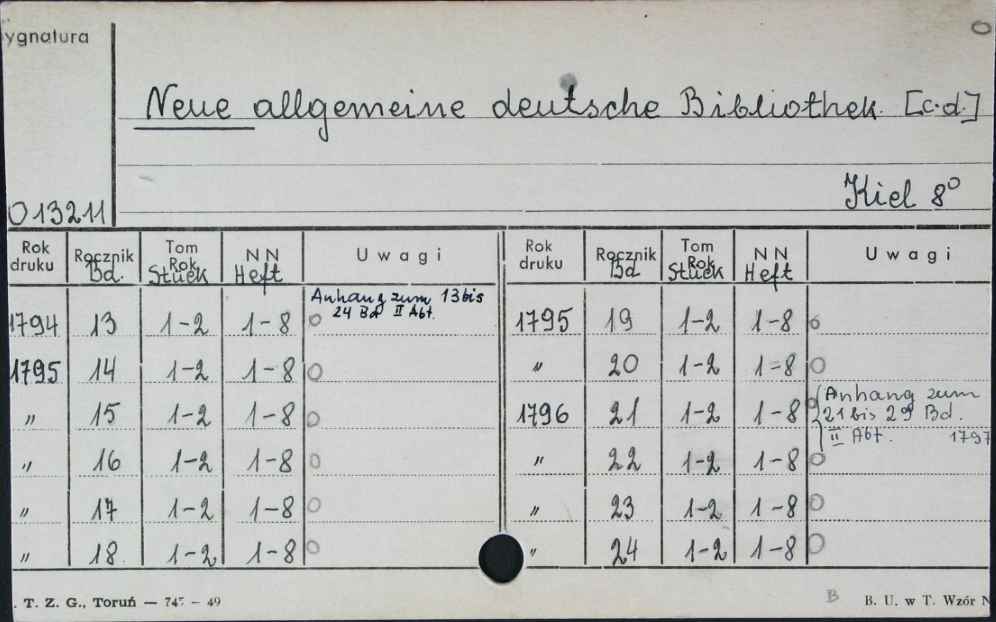 ygnatura
Neue allgemeine deutsche Bibliothek. [c.d.]
Kiel 8°
013211
Rok druku Rocznik Bd. Tom Rok Stück NN Heft Uwagi Rok druku Rocznik Bd Tom Rok Stück NN Heft Uwagi
1794 13 1-2 1-8 Anhang zum 13 bis 24 Bd II Abt. 1795 19 1-2 1-8
1795 14 1-2 1-8 " 20 1-2 1=8
" 15 1-2 1-8 1796 21 1-2 1-8 Anhang zum 21 bis 29 Bd. II Abt. 1797
" 16 1-2 1-8 " 22 1-2 1-8
" 17 1-2 1-8 " 23 1-2 1-8
" 18. 1-2 1-8 " 24 1-2 1-8
. T. Z. G., Toruń — 747 - 49 B B. U. w T. Wzór N